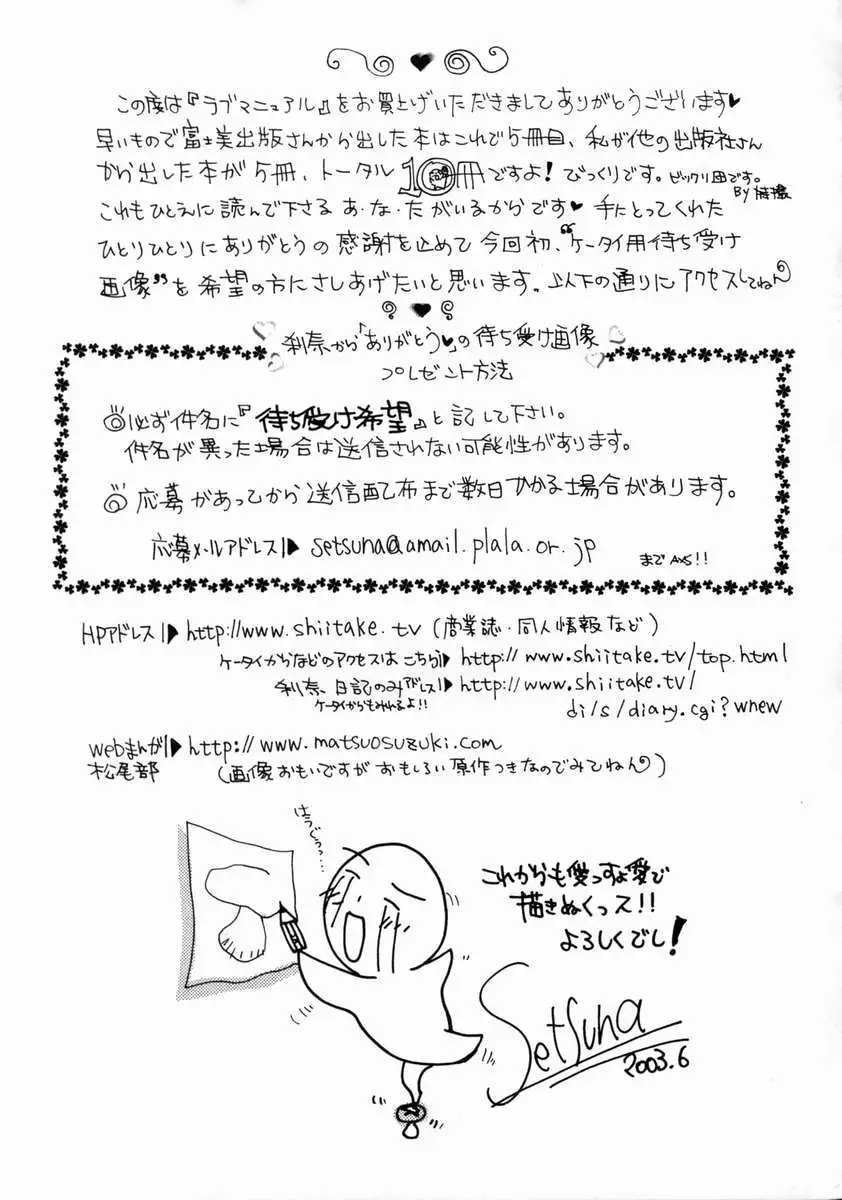 この度は『ラブマニュアル』をお買上げいただきましてありがとうございます♥
早いもので富士美出版さんから出した本はこれで5冊目、私が他の出版社さん
から出した本が5冊、トータル10冊ですよ！びっくりです。ビックリ団です。
BY
これもひとえに読んで下さるあ・な・たがいるからです♥ 手にとってくれた
ひとりひとりにありがとうの感謝を止めて今回初、“ケータイ用待ち受け
画像”を希望の方にさしあげたいと思います。以下の通りにアクセスしてねん
利奈から「ありがとう♥」の待ち受け画像
プレゼント方法
◎必ず件名に『待ち受け希望』と記して下さい。
件名が異った場合は送信されない可能性があります。
◎応募があってから送信配布まで数日かかる場合があります。
応募メールアドレス▶ setsuna@amail.plala.or.jp
まで
HPアドレス▶ http://www.shiitake.tv (商業誌・同人情報など)
ケータイからなどのアクセスはこちら▶ http://www.shiitake.tv/top.html
利奈、日記のみアドレス▶ http://www.shiitake.tv/
ケータイからもみれるよ!!
di/s/diary.cgi?wnew
webまんが▶ http://www.matsuosuzuki.com
松尾部 (画像おもいですがおもしろい原作つきなのでみてねん)
はうじゅっ…
これからも愛っすよ愛で
描きぬくっス!!
よろしくでし！
Setsuna
2003.6